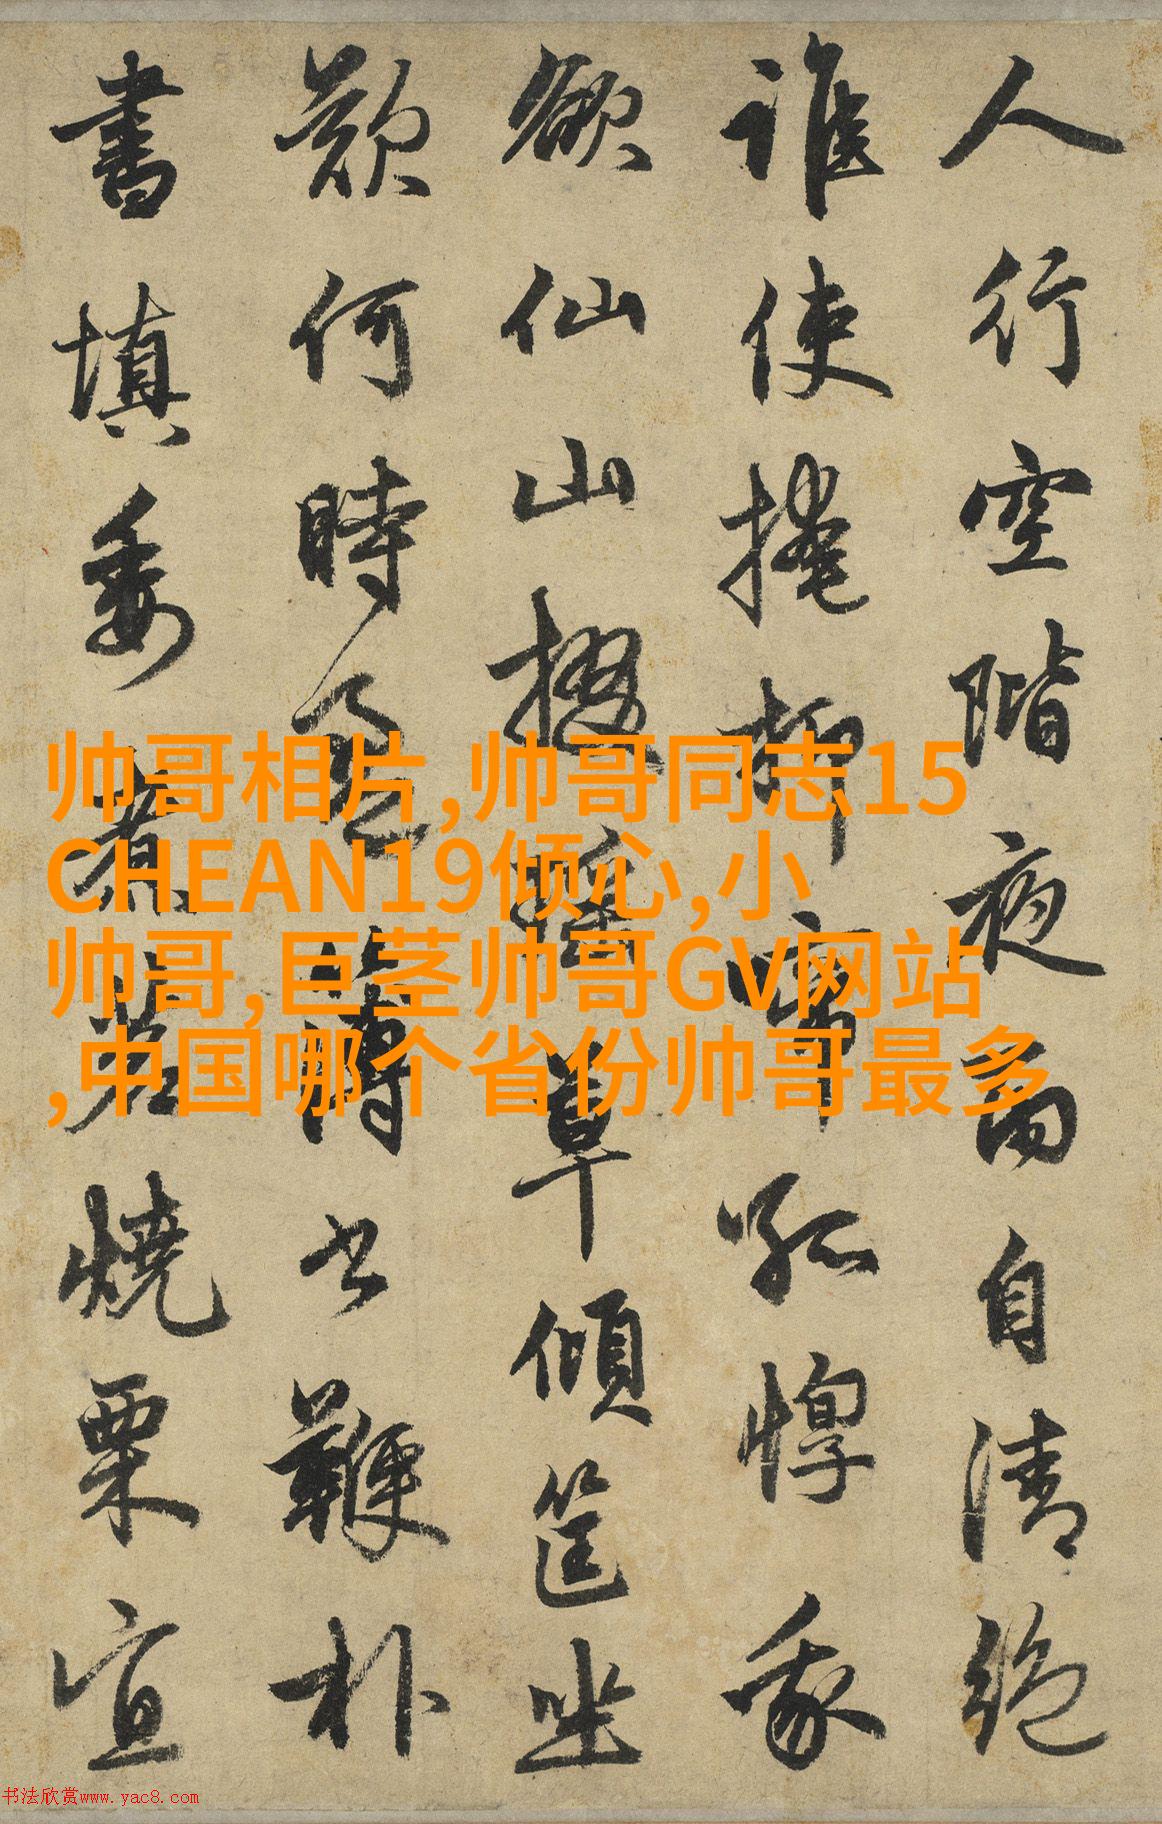 人行空階夜雨自清絕
誰使掩抑啼孤惸我
欲仙山掇瑤草傾筐坐
歎何時盈簿書鞭扑
晝填委煮茗燒栗宜
帅哥相片,帅哥同志15
CHEAN19倾心,小
帅哥,巨茎帅哥GV网站
,中国哪个省份帅哥最多
书法欣赏www.yac8.com